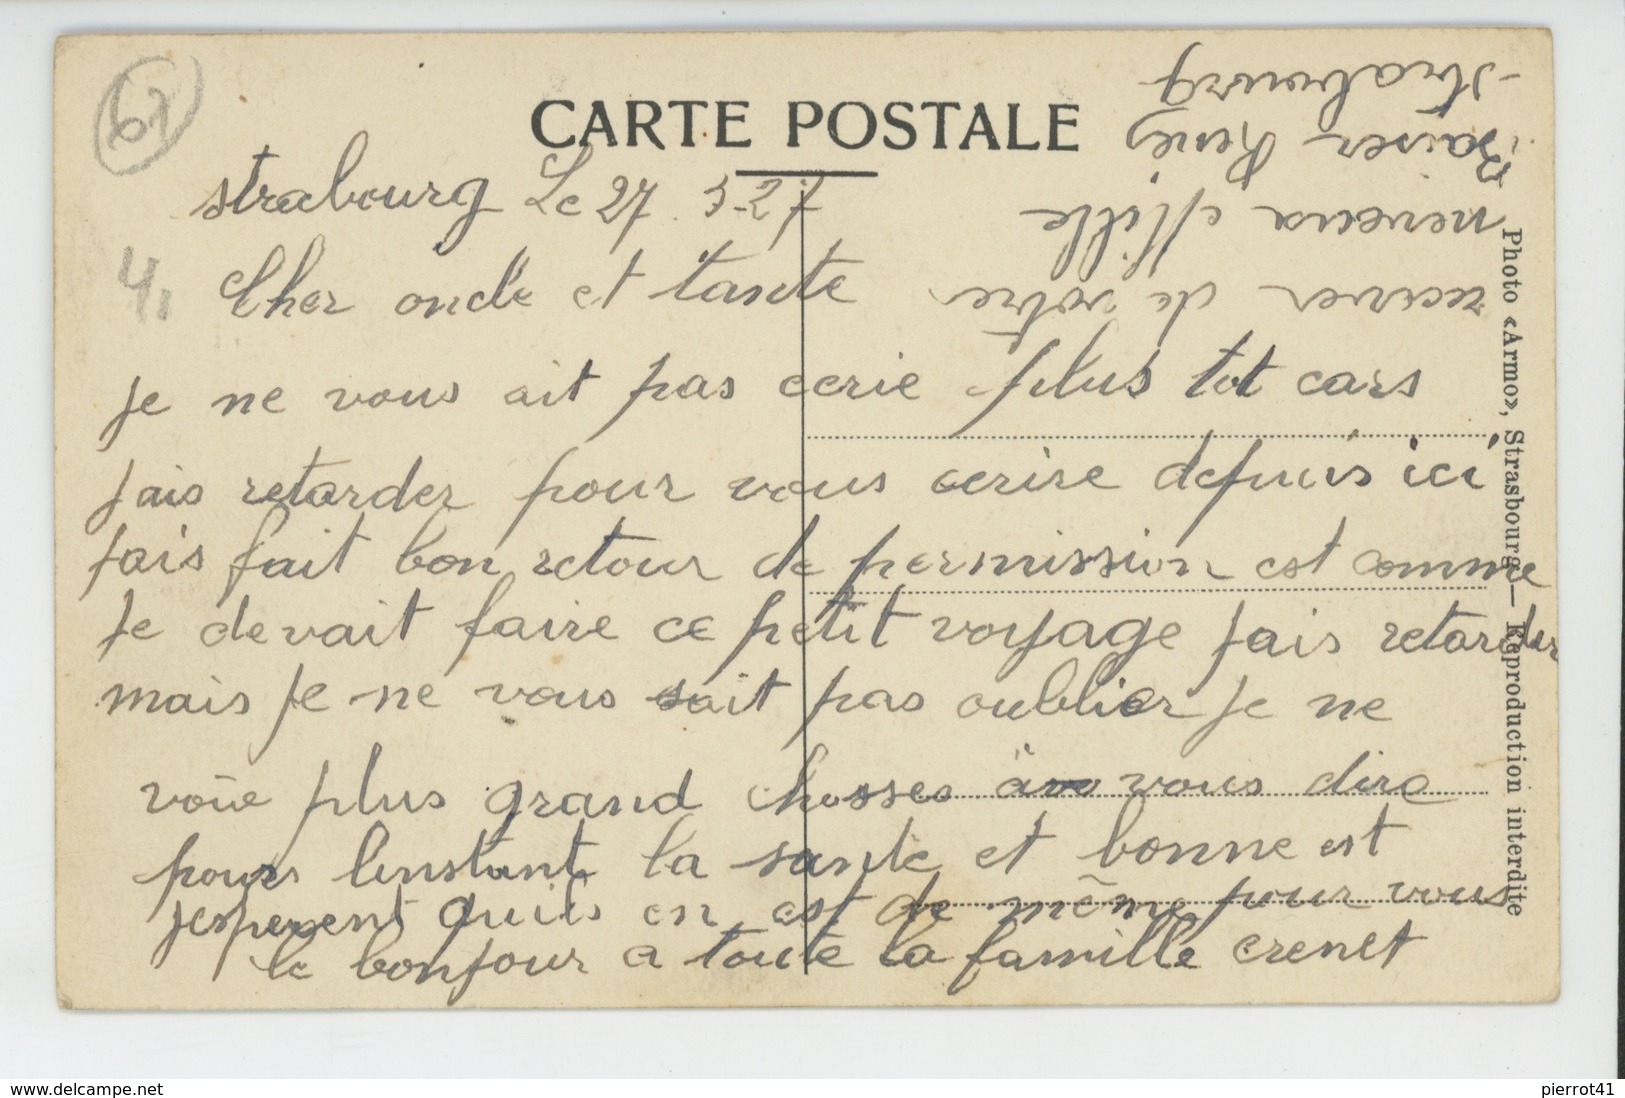 67
CARTE POSTALE
strabourg Le 27 3-27
4,
Cher oncle et tante
je ne vous ait pas ecrie plus tot cars
jais retarder pour vous ecrire depuis ici
jais fait bon retour de permission est comme
je devait faire ce petit voyage jais retarder
mais je ne vous sait pas oublier je ne
voie plus grand chosses à vous dire
pours linstant la sante et bonne est
jesperent quils en est de même pour vous
le bonjour a toute la famille crenet
recever de votre
neveus Mille
Baiser René
Strabourg
Photo «Armo», Strasbourg — Reproduction interdite
www.delcampe.net
pierrot41